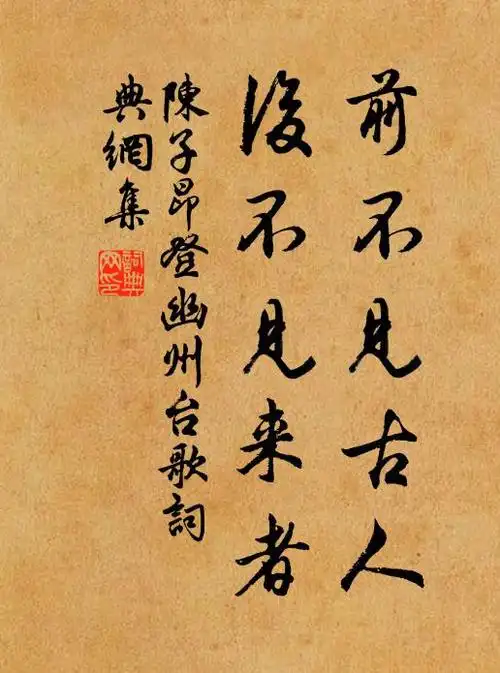 前不見古人
後不見来者
陳子昂登幽州台歌詞
典網集
詞典網印